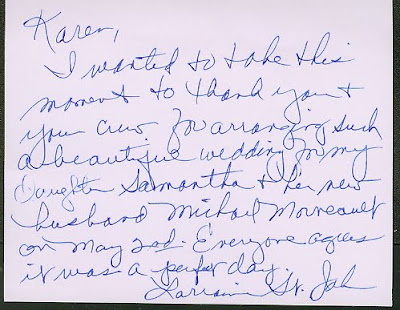 Karen,
I wanted to take this
moment to thank you &
your crew for arranging such
a beautiful wedding for my
Daughter Samantha & her new
husband Michael Morneault
on May 2nd. Everyone agrees
it was a perfect day.
St.